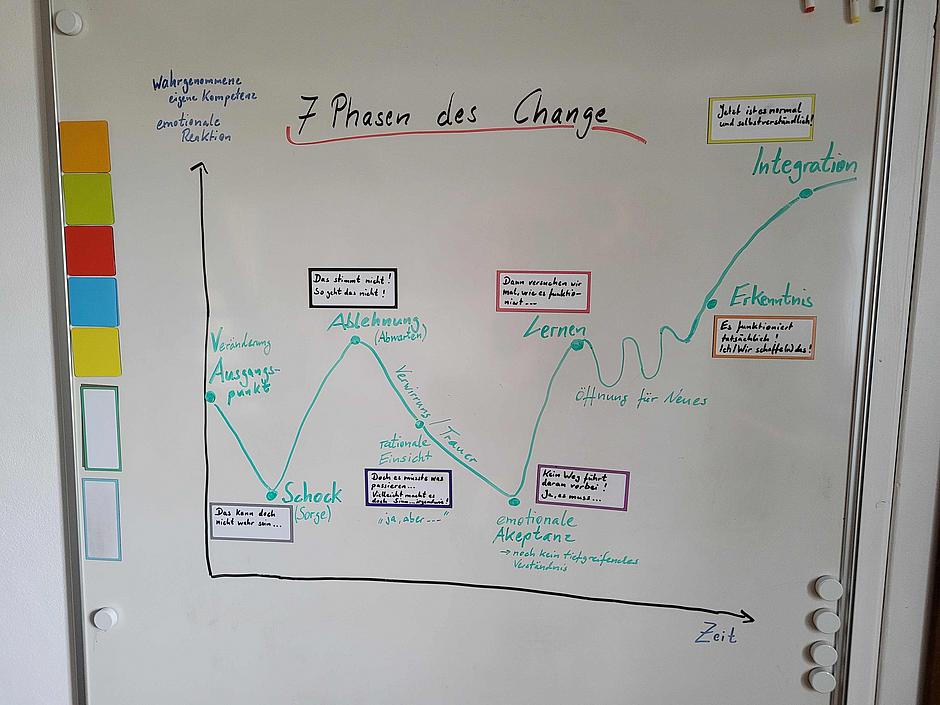 Wahrgenommene
eigene Kompetenz
emotionale
Reaktion
7 Phasen des Change
Jetzt ist es normal
und selbstverständlich!
Integration
Das stimmt nicht!
So geht das nicht!
Ablehnung
(Abwarten)
Dann versuchen wir
mal, wie es funktio-
niert...
Lernen
Erkenntnis
Es funktioniert
tatsächlich!
Ich/Wir schaffe(n) das!
Veränderung
Ausgangs-
punkt
Verwirrung / Trauer
Öffnung für Neues
rationale
Einsicht
Doch es musste was
passieren...
Vielleicht macht es
doch Sinn...irgendwie!
"ja, aber---"
Schock
(Sorge)
Das kann doch
nicht wahr sein...
Kein Weg führt
daran vorbei!
Ja, es muss...
emotionale
Akeptanz
→ noch kein tiefgreifendes
Verständnis
Zeit